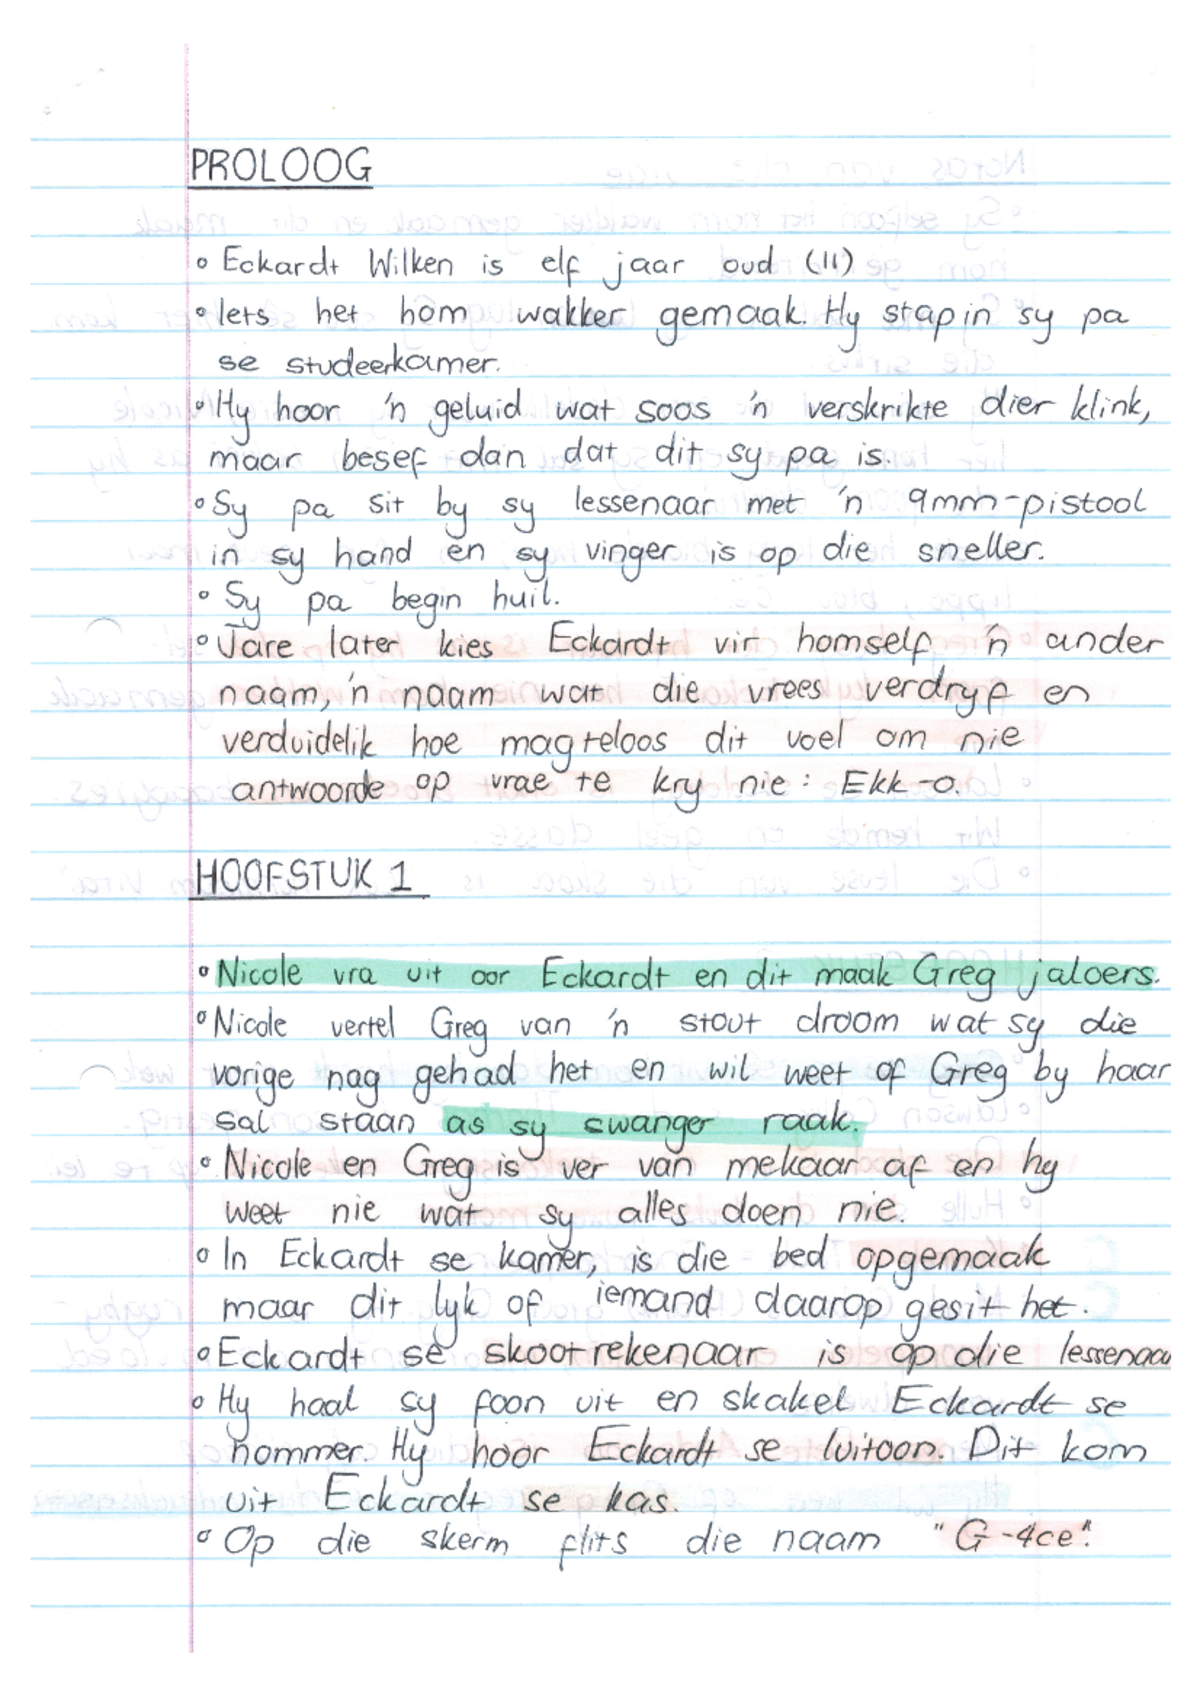 PROLOOG
° Eckardt Wilken is elf jaar oud (11)
° Iets het hom wakker gemaak. Hy stap in sy pa
se studeerkamer.
° Hy hoor 'n geluid wat soos 'n verskrikte dier klink,
maar besef dan dat dit sy pa is.
° Sy pa sit by sy lessenaar met 'n 9mm-pistool
in sy hand en sy vinger is op die sneller.
° Sy pa begin huil.
° Jare later kies Eckardt vir homself 'n ander
naam, 'n naam wat die vrees verdryf en
verduidelik hoe magteloos dit voel om nie
antwoorde op vrae te kry nie: Ekk-o.
HOOFSTUK 1
° Nicole vra uit oor Eckardt en dit maak Greg jaloers.
° Nicole vertel Greg van 'n stout droom wat sy die
vorige nag gehad het en wil weet of Greg by haar
sal staan as sy swanger raak.
° Nicole en Greg is ver van mekaar af en hy
weet nie wat sy alles doen nie.
° In Eckardt se kamer, is die bed opgemaak
maar dit lyk of iemand daarop gesit het.
° Eckardt se skootrekenaar is op die lessenaar
° Hy haal sy foon uit en skakel Eckardt se
nommer. Hy hoor Eckardt se luitoon. Dit kom
uit Eckardt se kas.
° Op die skerm flits die naam "G-4ce".